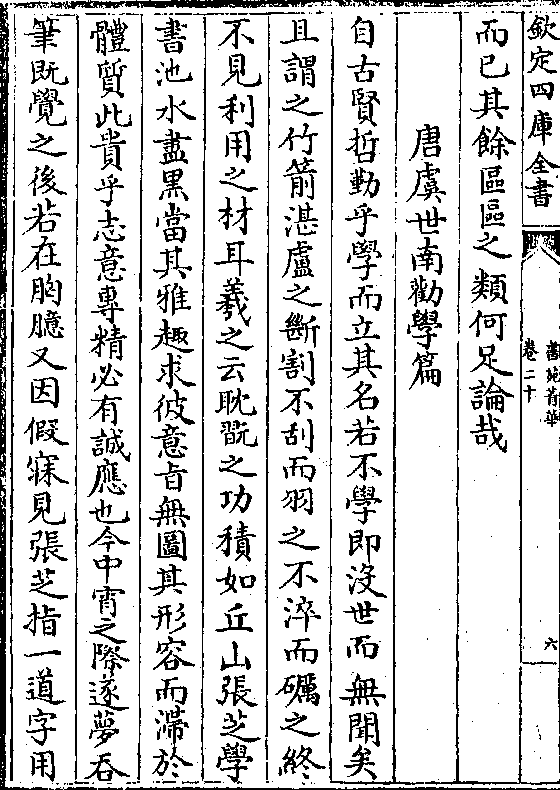 欽定四庫全書
卷二十
六
而已其餘區區之類何足論哉
唐虞世南勸學篇
自古賢哲勤乎學而立其名若不學即沒世而無聞矣
且謂之竹箭湛盧之斷割不刮而羽之不淬而礪之終
不見利用之材耳羲之云耽翫之功積如丘山張芝學
書池水盡黑當其雅趣求彼意旨無圖其形容而滯於
體質此貴乎志意專精必有誠應也今中宵之際遂夢吞
筆既覺之後若在胸臆又因假寐見張芝指一道字用